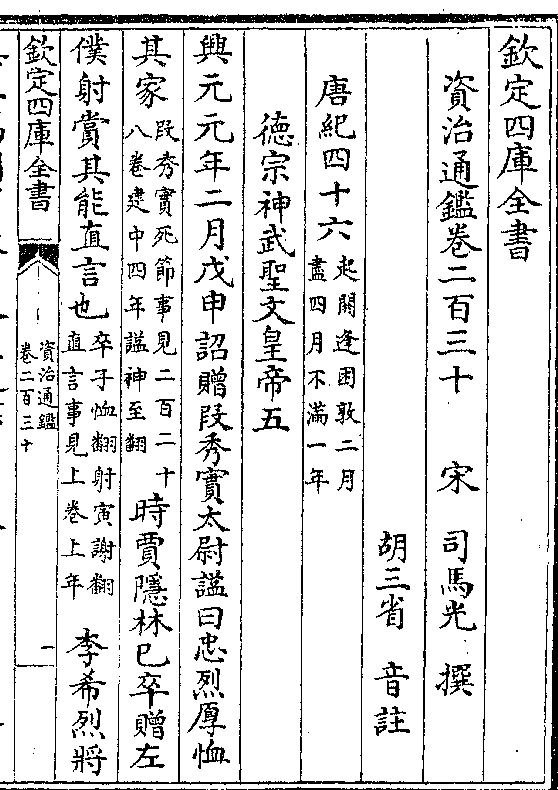 欽定四庫全書
資治通鑑卷二百三十　宋　司馬光　撰
胡三省　音註
唐紀四十六起閼逢困敦二月
盡四月不滿一年
德宗神武聖文皇帝五
興元元年二月戊申詔贈段秀實太尉諡曰忠烈厚恤
其家段秀實死節事見二百二十
八卷建中四年諡神至翻時賈隱林已卒贈左
僕射賞其能直言也卒子恤翻射寅謝翻
直言事見上卷上年李希烈將
欽定四庫全書
資治通鑑
卷二百三十
一